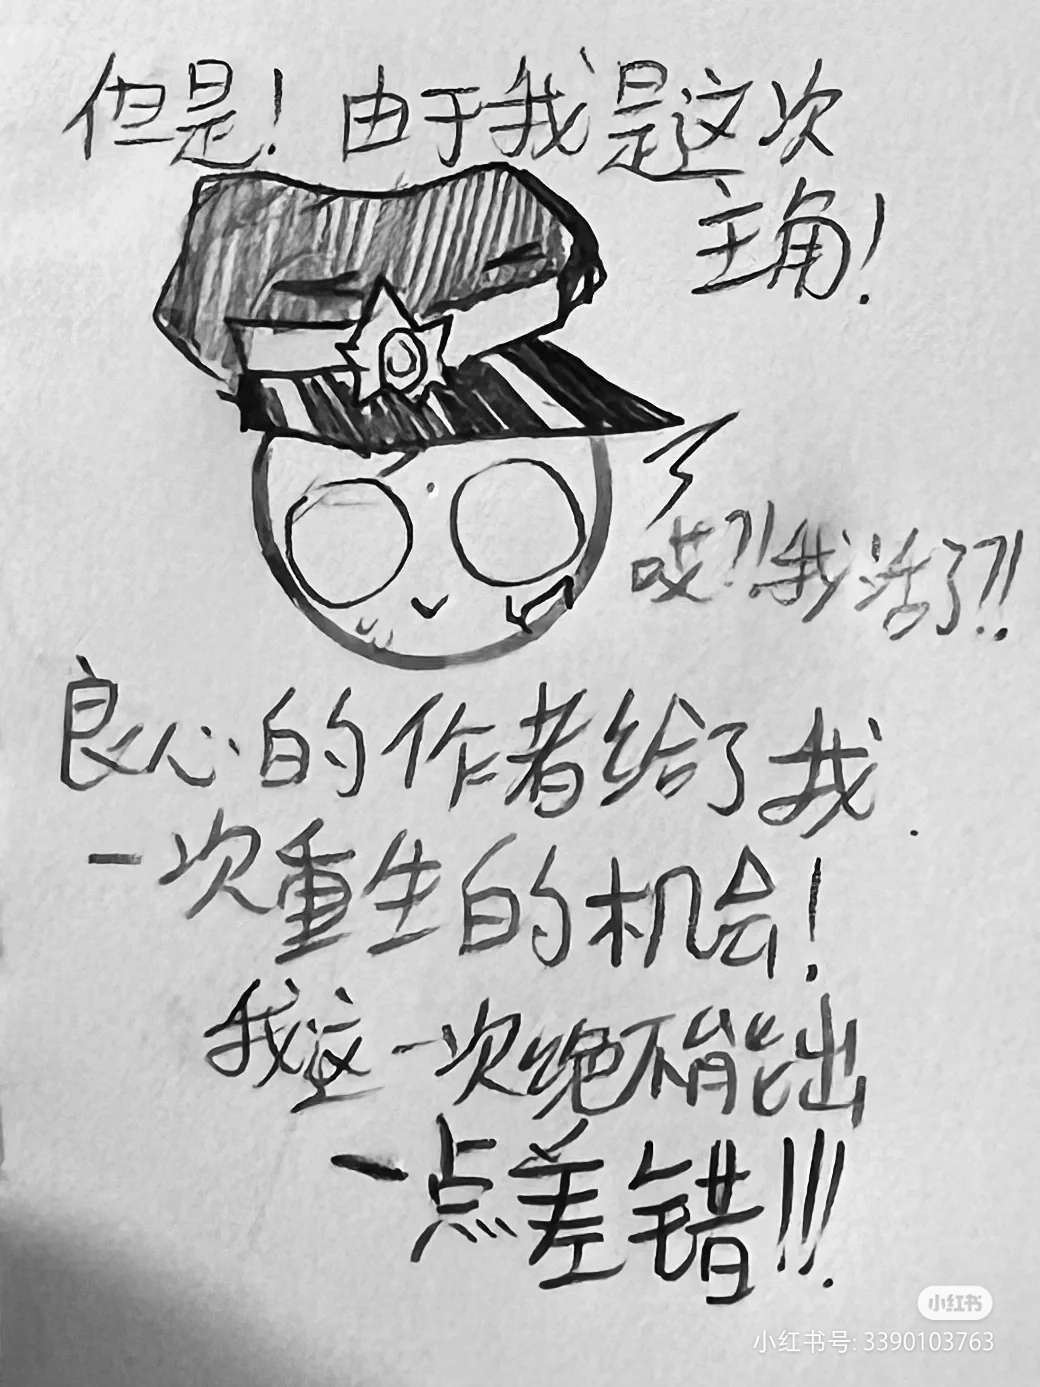 但是！由于我是这次
主角！
哎?!我活了?!!
良心的作者给了我
一次重生的机会！
我这一次绝不能出
一点差错!!!
小红书
小红书号: 3390103763